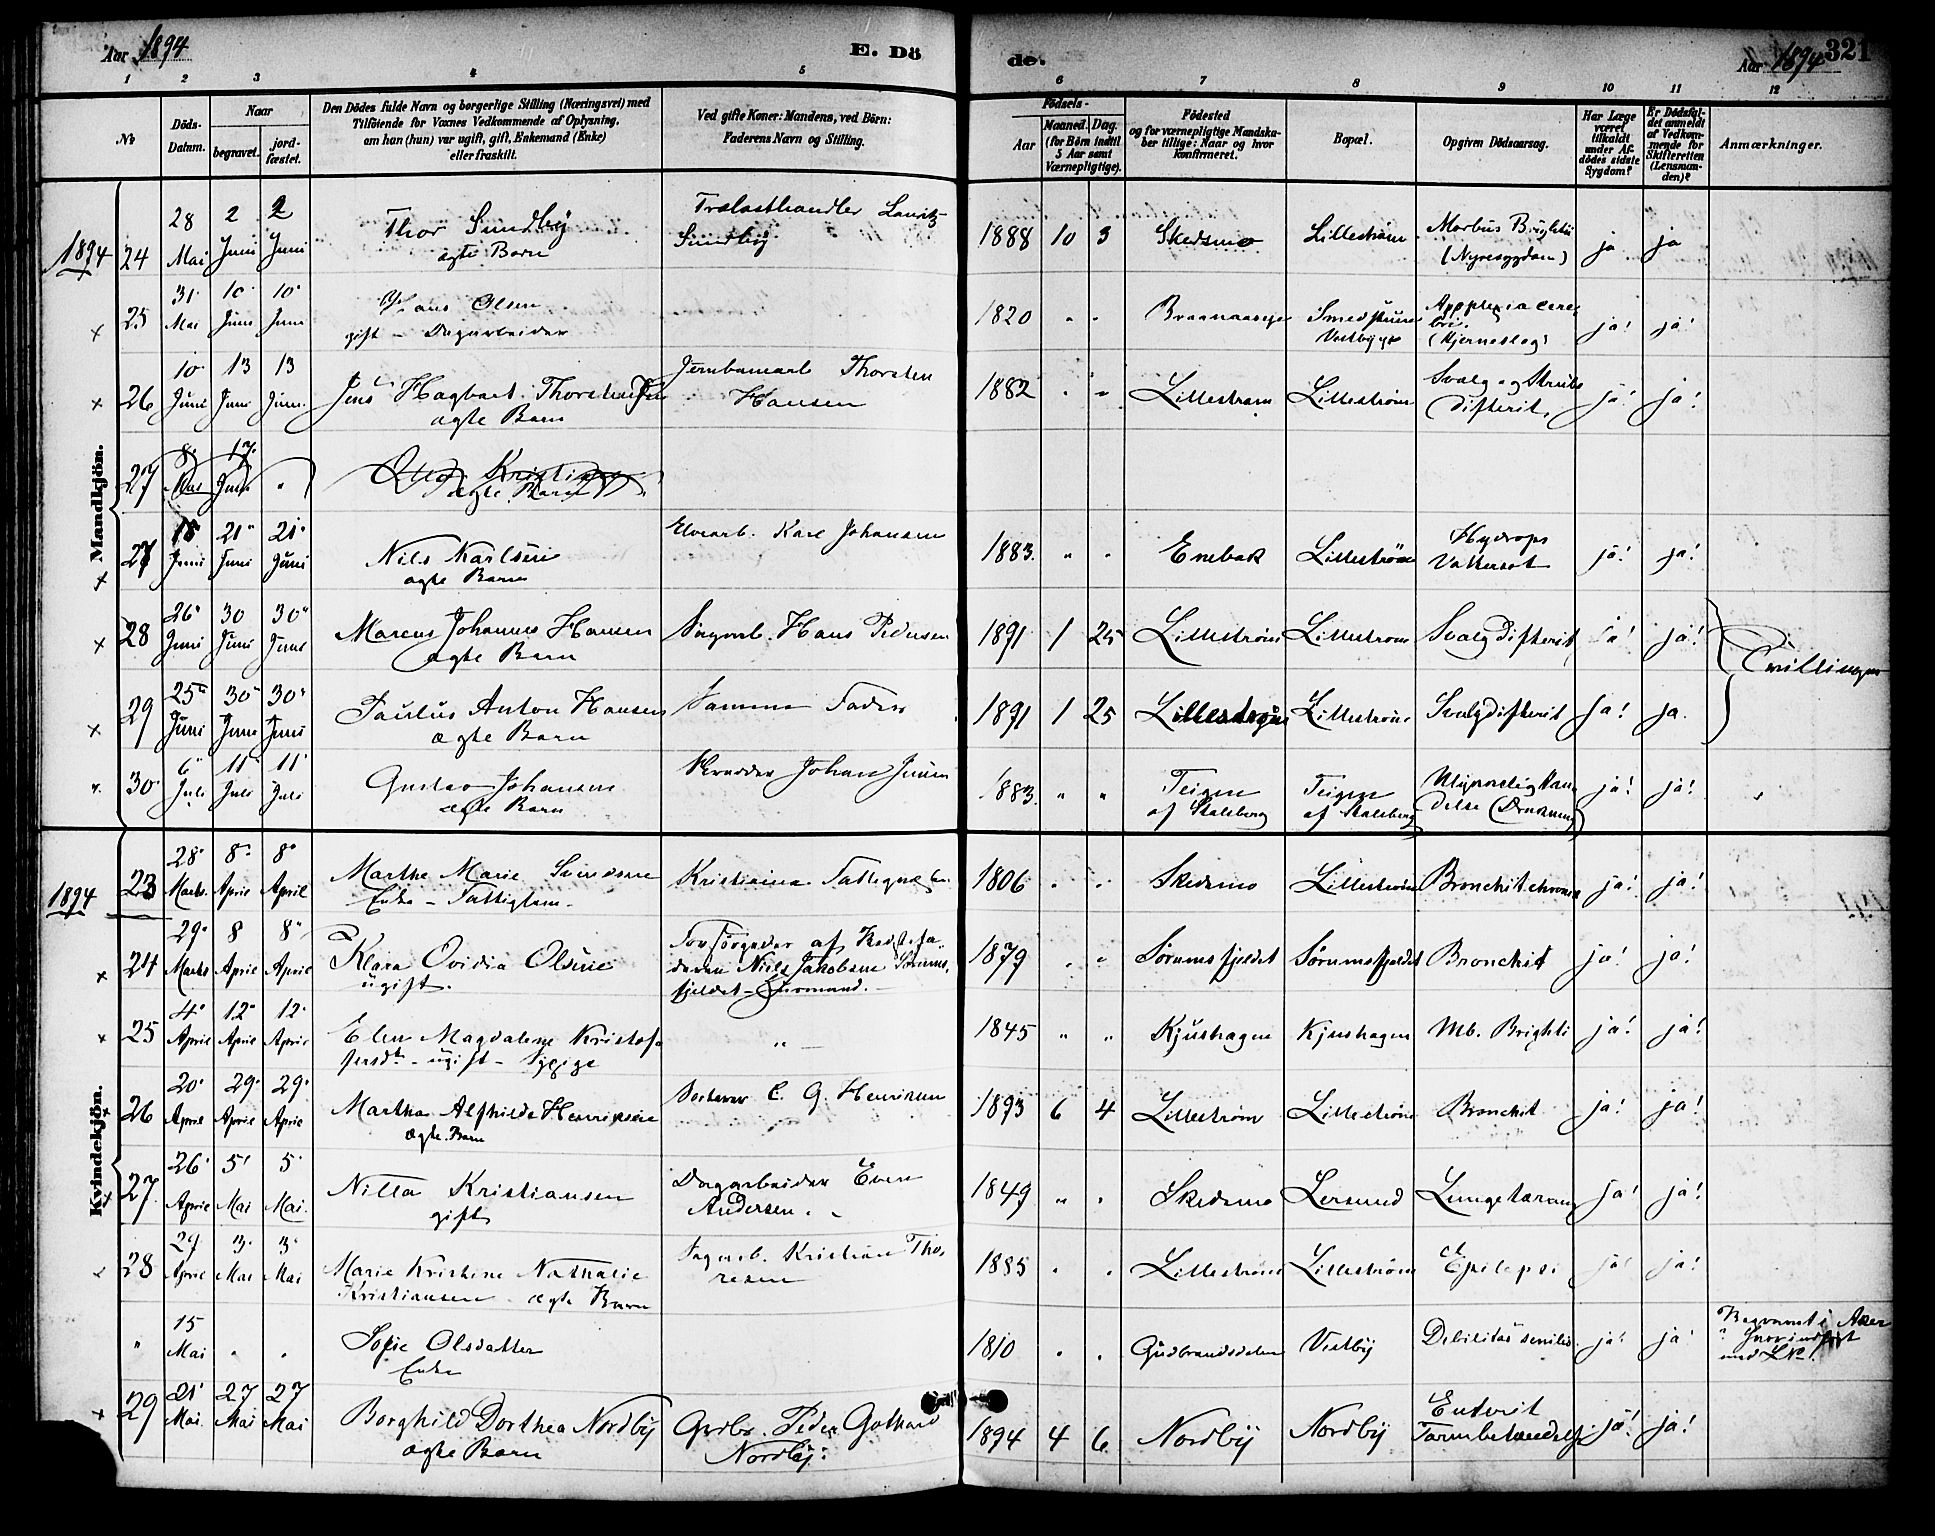 Aar 1894
E. Dö
de.
Aar 1894
321
1 2 3 4 5 6 7 8 9 10 11 12
No
Döds-
Datum.
Naar
begravet.
jord-
fæstet.
Den Dödes fulde Navn og borgerlige Stilling (Næringsvei) med
Tilföiende for Voxnes Vedkommende af Oplysning,
om han (hun) var ugift, gift, Enkemand (Enke)
eller fraskilt.
Ved gifte Koner: Mandens, ved Börn:
Faderens Navn og Stilling.
Födsels-
Aar
Maaned. Dag.
(for Börn indtil
5 Aar samt
Værnepligtige).
Födested
og for værnepligtige Mandska-
ber tillige: Naar og hvor
konfirmeret.
Bopæl.
Opgiven Dödsaarsag.
Har Læge
været
tilkaldt
under Af-
dödes sidste
Sygdom?
Er Dödsfal-
det anmeldt
af Vedkom-
mende for
Skifteretten
(Lensman-
den)?
Anmærkninger.
Mandkjön.
1894 24 28 Mai 2 Juni 2 Juni
Thor Sundby
ægte Barn
Trælasthandler Lauritz
Sundby
1888 10 3 Skedsmo Lillestrøm
Morbus Brightii
(Nyresygdom)
ja ja
x 25 31 Mai 10 Juni 10 Juni
Hans Olsen
gift - Dagarbeider
1820 " "
Vestby
Apoplexia cere
bri.
(Hjerneslag)
ja! ja!
x 26 10 Juni 13 Juni 13 Juni
Jens Hagbart Thorstensen
ægte Barn
Jernbanearb Thorsten
Hansen
1882 " " Lillestrøm Lillestrøm
Svælg og Strube
difterit.
ja! ja!
27 8 17 Juni "
Kristian
ægte Barn
x 27 18 Juni 21 Juni 21 Juni
Nils Karlsen
ægte Barn
Elvearb. Karl Johansen
1883. " " Enebak Lillestrøm
Hydrops
Vattersot
ja! ja!
x 28 26 Juni 30 Juni 30 Juni
Marcus Johannes Hansen
ægte Barn
Sagarb. Hans Pedersen
1891 1 25 Lillestrøm Lillestrøm Svælgdifterit ja! ja!
Tvillinger
x 29 25 Juni 30 Juni 30 Juni
Paulus Anton Hansen
ægte Barn
Samme Fader
1891 1 25 Lillestrøm Lillestrøm Svælgdifterit ja! ja.
30 6 Juli 11 Juli 11 Juli
Gustav Johansen
ægte Barn
Skrædder Johan Jensen
1883. " "
Teigen
af Stalsberg
Teigen
af Stalsberg
Ulykkelig Hæn
delse (Drukning)
ja! ja!
Kvindekjön.
1894 23 28 Marts 8 April 8 April
Marthe Marie Svendsen
Enke - Fattiglem.
1806 " " Skedsmo Lillestrøm Bronchit chronica ja! ja!
x 24 29 Marts 8 April 8 April
Klara Ovidia Olsen
ugift.
Forsörgeder af Bedstefa-
deren Niels Jakobsen Sörums-
fjeldet
1879 " " Sörumsfjeldet Sörumsfjeldet Bronchit ja! ja!
x 25 4 April 12 April 12 April
Elen Magdalene Kristof-
fersdtr - ugift - Sypige
" —
1845 " " Kjushagen Kjushagen Mb. Brighti ja! ja!
x 26 20 April 29 April 29 April
Martha Alfhilde Henriksen
ægte Barn
C. G. Henriksen
1893 6 4 Lillestrøm Lillestrøm Bronchit ja! ja!
x 27 26 April 5 Mai 5 Mai.
Nilla Kristiansen
gift
Dagarbeider Even
Andersen.
1849 " " Skedsmo Lersund Lungetæring ja! ja!
28 29 April 3 Mai 3 Mai
Marie Kristine Nathalie
Kristiansen - ægte Barn
Sagarb. Kristian Tho-
resen
1885 " " Lillestrøm Lillestrøm Epilepsi ja! ja!
" 15 Mai " "
Sofie Olsdatter
Enke
1810 " " Gudbrandsdalen Vestby Debilitas senilis ja! ja!
Begravet i Aker
x 29 21 Mai. 27 Mai 27 Mai
Borghild Dorthea Nordby
ægte Barn
Grdbr. Peder Gothard
Nordby.
1894 4 6 Nordby Nordby
Enterit
Tarmbetændelse
ja! ja!